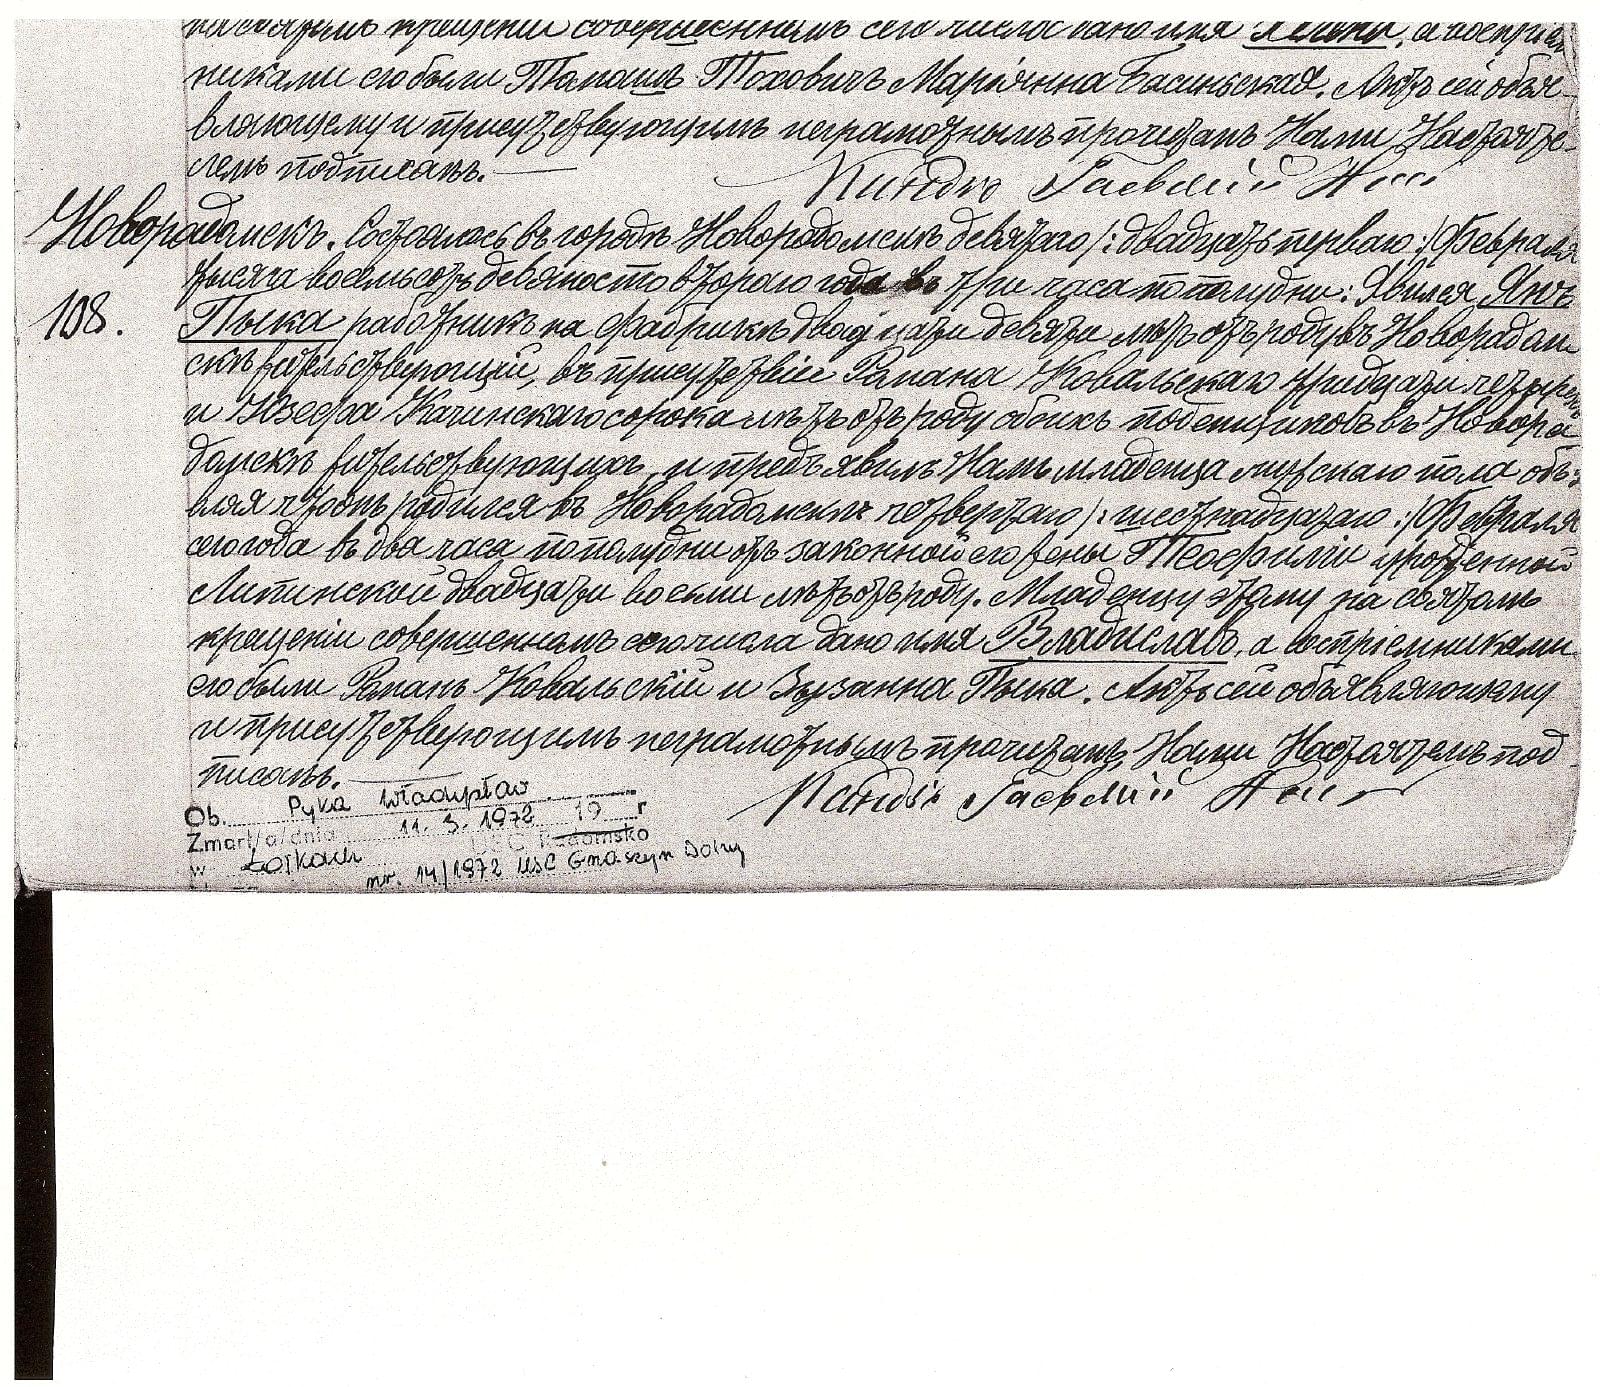 на святомъ крещеніи совершенномъ сего числа дано имя, а воспріем
никами его были Томашъ Тоховичъ Маріянна Басиньская. Актъ сей объя-
вляющему и присутствующимъ неграмотнымъ прочитанъ Нами Настояте-
лемъ подписанъ.
Новорадомскъ. Состоялось въ городѣ Новорадомскѣ девятаго /: двадцать перваго :/ Февраля
108.
тысяча восемьсотъ девяносто втораго года въ три часа по полудни: Явился Янъ
Пыка работникъ на фабрикѣ двадцати девяти лѣтъ отъ роду въ Новорадом
скѣ жительствующій, въ присутствіи Романа Ковальскаго тридцати четырехъ
и Юзефа Качинскаго сорока лѣтъ отъ роду обоихъ поденщиковъ въ Новора
домскѣ жительствующихъ, и предъявилъ Намъ младенца мужскаго пола объ
вляя что онъ родился въ Новорадомскѣ четвертаго /: шестнадцатаго :/ Февраля
сего года въ два часа по полудни отъ законной его жены Теофиліи урожденной
Липинской двадцати восьми лѣтъ отъ роду. Младенцу этому на святомъ
крещеніи совершенномъ сего числа дано имя Владиславъ, а воспріемниками
его были Романъ Ковальскій и Зузанна Пыка. Актъ сей объявляющему
и присутствующимъ неграмотнымъ прочитанъ Нами Настоятелемъ под
писанъ.
Ob. Pyka Władysław
Zmarł/a/dnia 11. 3. 1972 19 r
w Łojkach USC Radomsko
nr. 14/1972 USC Gnaszyn Dolny